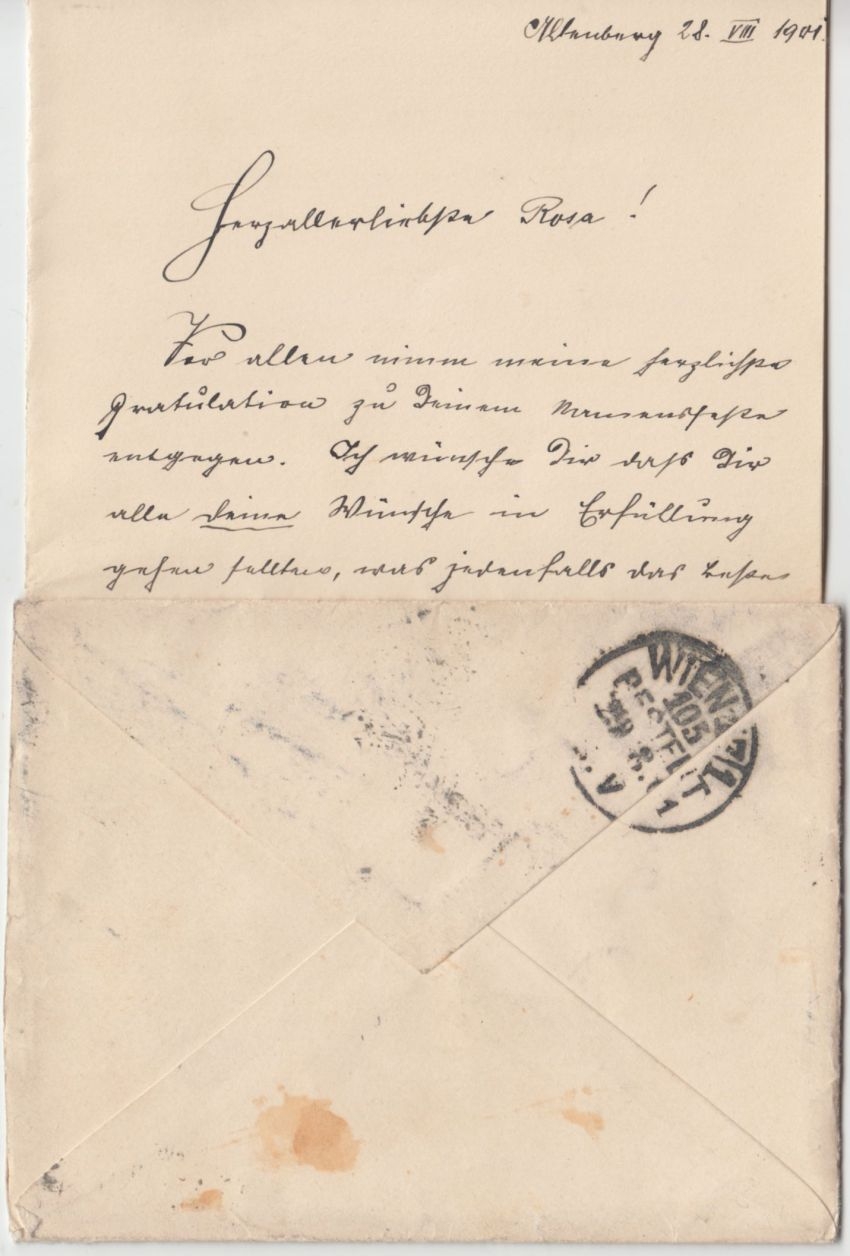 Altenberg 28. VIII 1901.
Herzallerliebste Rosa!
Vor allen nimm meine herzlichste
Gratulation zu Deinem Namensfeste
entgegen. Ich wünsche Dir daß Dir
alle deine Wünsche in Erfüllung
gehen sollten, was jedenfalls das beste
WIEN
105
BESTELLT
29. 8. 01
V